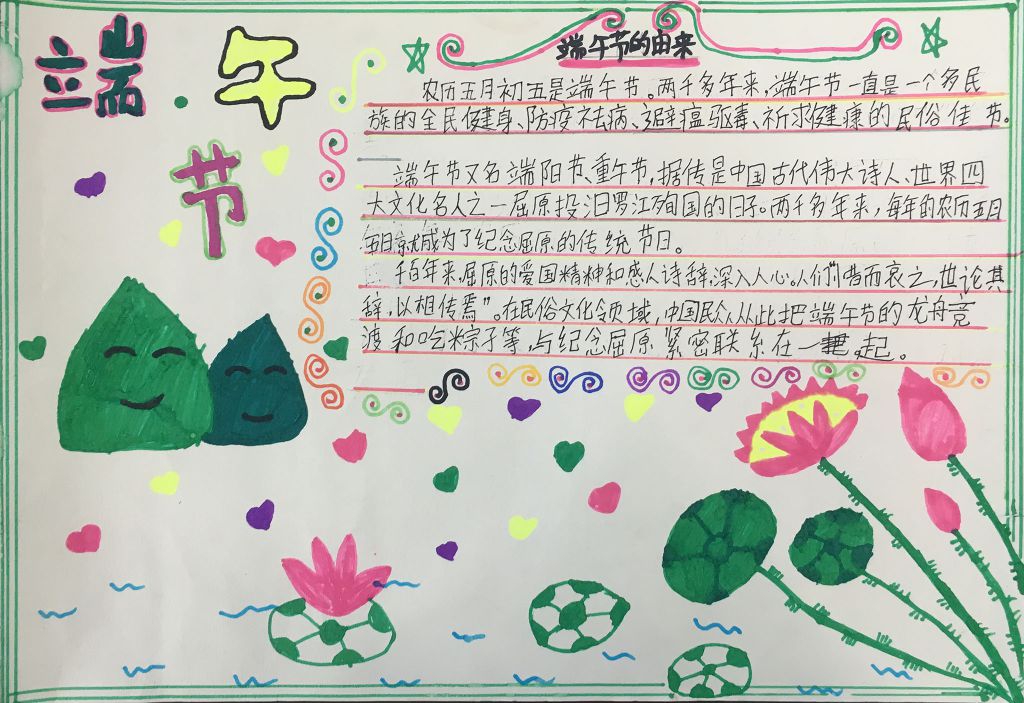 端午节
端午节的由来
农历五月初五是端午节。两千多年来,端午节一直是一个多民
族的全民健身、防疫祛病、避瘟驱毒、祈求健康的民俗佳节。
端午节又名端阳节、重午节,据传是中国古代伟大诗人、世界四
大文化名人之一屈原投汨罗江殉国的日子。两千多年来,每年的农历五月
五日就成为了纪念屈原的传统节日。
千百年来,屈原的爱国精神和感人诗辞,深入人心。人们“惜而哀之,世论其
辞,以相传焉”。在民俗文化领域,中国民众从此把端午节的龙舟竞
渡和吃粽子等,与纪念屈原紧密联系在一起。